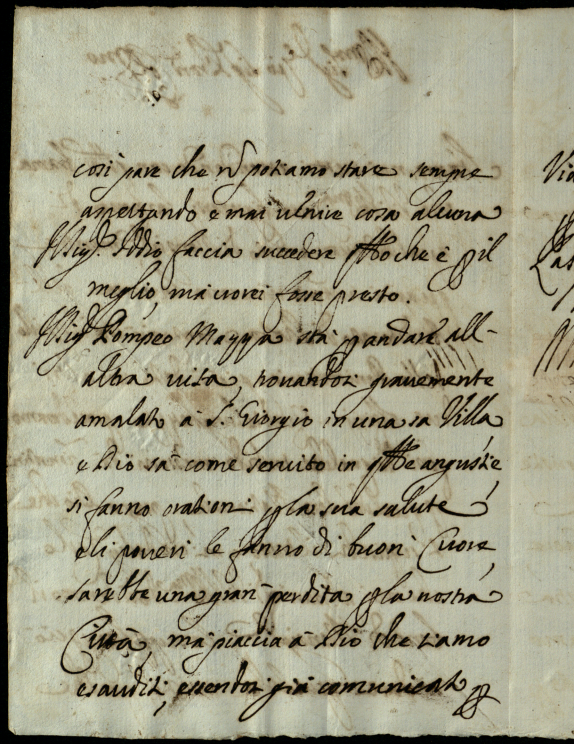 così pare che nõ potiamo stare sempre
aspettando e mai venire cosa alcuna
Il Sig.r Iddio faccia succedere q̃llo che è p il
meglio, ma vorei fosse presto.
Il Sig.r Pompeo Mazza sta p andare all-
altra vita, trovandosi gravemente
amalato à S. Giorgio in una sa Villa
e Dio sà come servito in q̃lle angustie,
si fanno orationi p la sua salute
e li poveri le fanno di buon Cuore,
sarebbe una gran perdita p la nostra
Città, ma piaccia à Dio che siamo
esauditi, essendosi già comunicato p